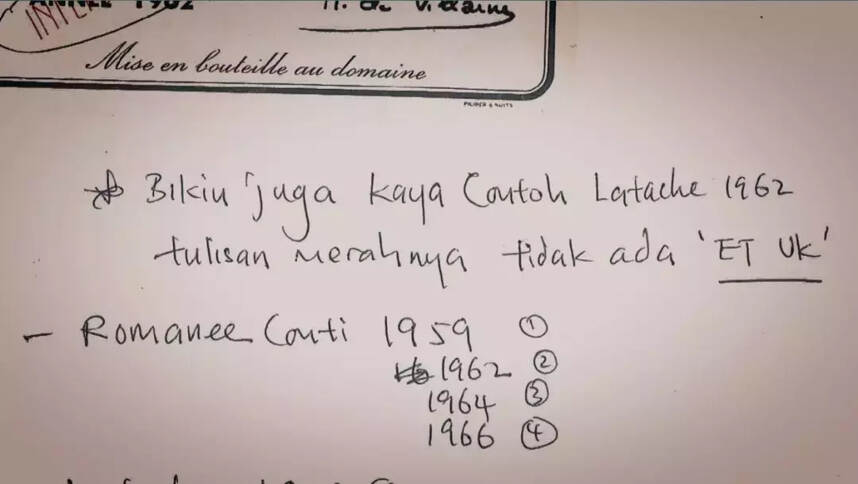 ANNEE 1962
INTE
Mise en bouteille au domaine
* Bikin juga kaya Contoh Latache 1962
tulisan merahnya tidak ada 'ET UK'
- Romanee Conti 1959 ①
1962 ②
1964 ③
1966 ④